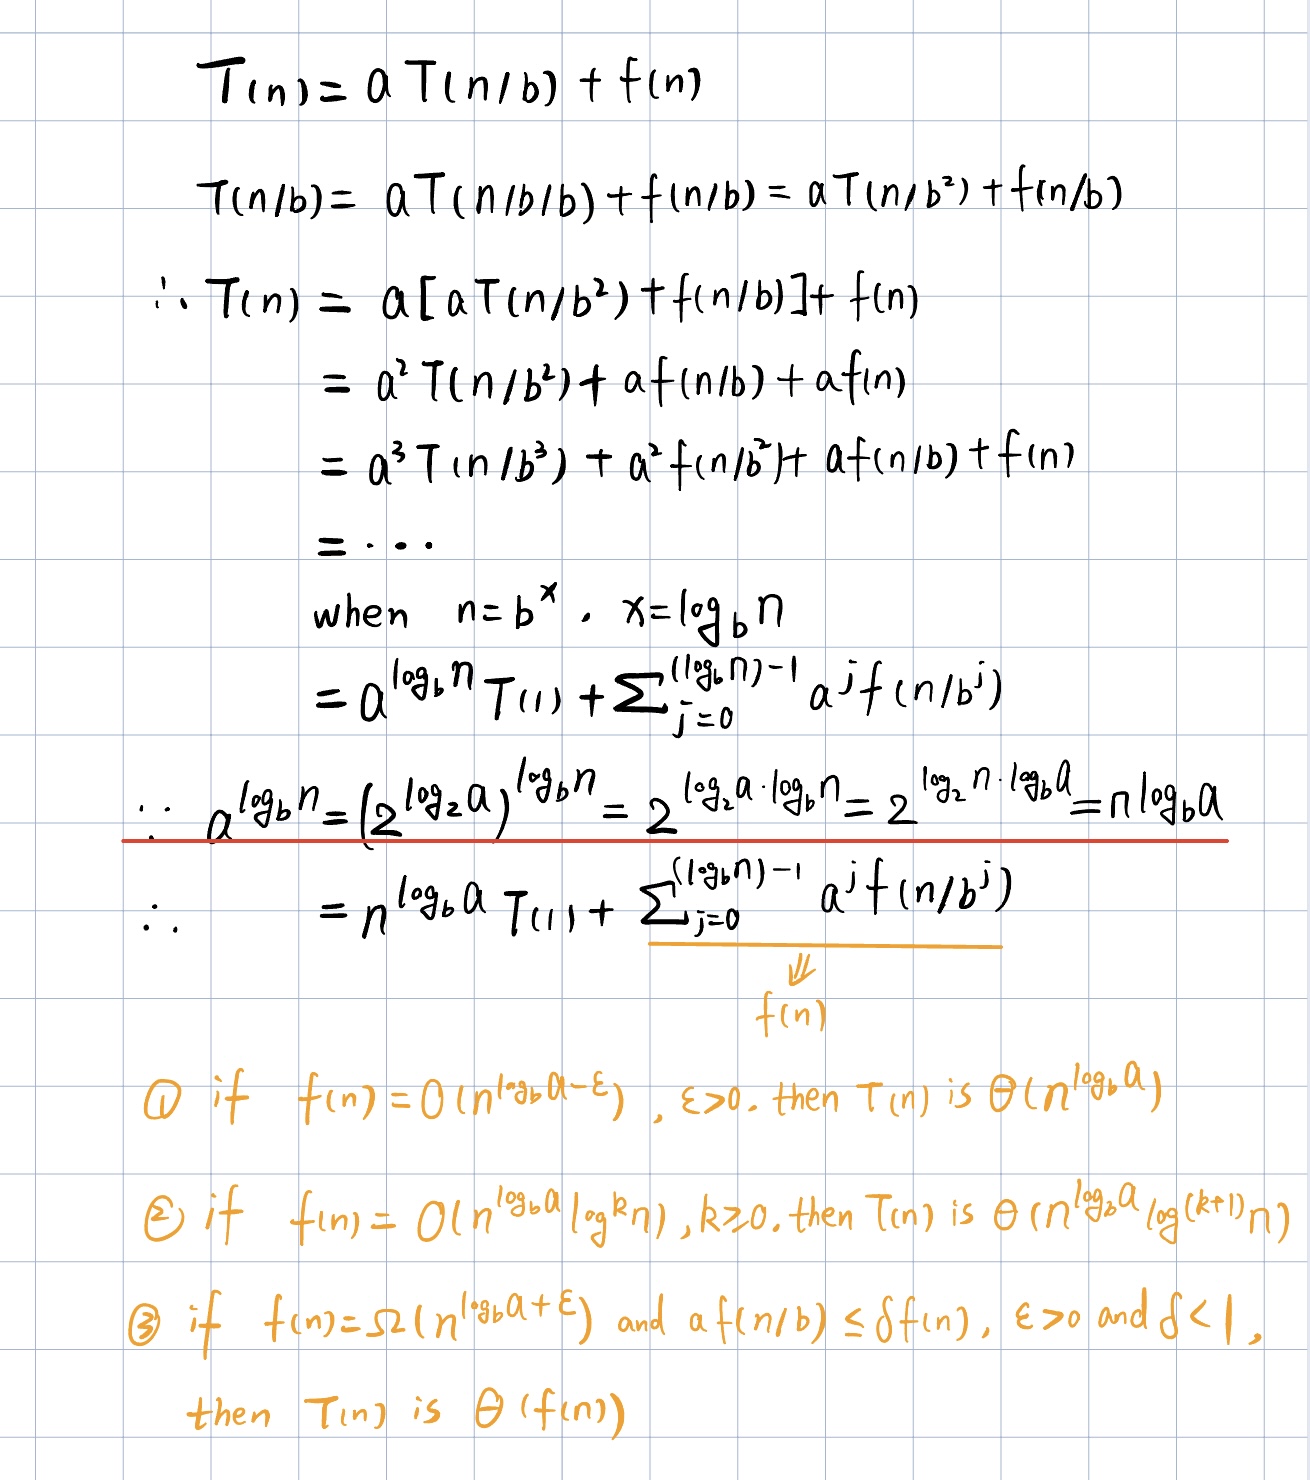 T(n) = a T(n/b) + f(n)
T(n/b) = aT(n/b/b) + f(n/b) = aT(n/b²) + f(n/b)
∴ T(n) = a[aT(n/b²) + f(n/b)] + f(n)
= a² T(n/b²) + af(n/b) + af(n)
= a³ T(n/b³) + a² f(n/b²) + af(n/b) + f(n)
= ···
when n = b^x . x = log_b n
= a^{log_b n} T(1) + ∑_{j=0}^{(log_b n)-1} a^j f(n/b^j)
∵ a^{log_b n} = (2^{log_2 a})^{log_b n} = 2^{log_2 a · log_b n} = 2^{log_2 n · log_b a} = n log_b a
∴ = n^{log_b a} T(1) + ∑_{j=0}^{(log_b n)-1} a^j f(n/b^j)
⇓
f(n)
① if f(n) = O(n^{log_b a-ε}), ε>0. then T(n) is θ(n^{log_b a})
② if f(n) = O(n^{log_b a} log^k n), k≥0. then T(n) is θ(n^{log_b a} log^{(k+1)} n)
③ if f(n) = Ω(n^{log_b a+ε}) and af(n/b) ≤ δf(n), ε>0 and δ<1,
then T(n) is θ(f(n))